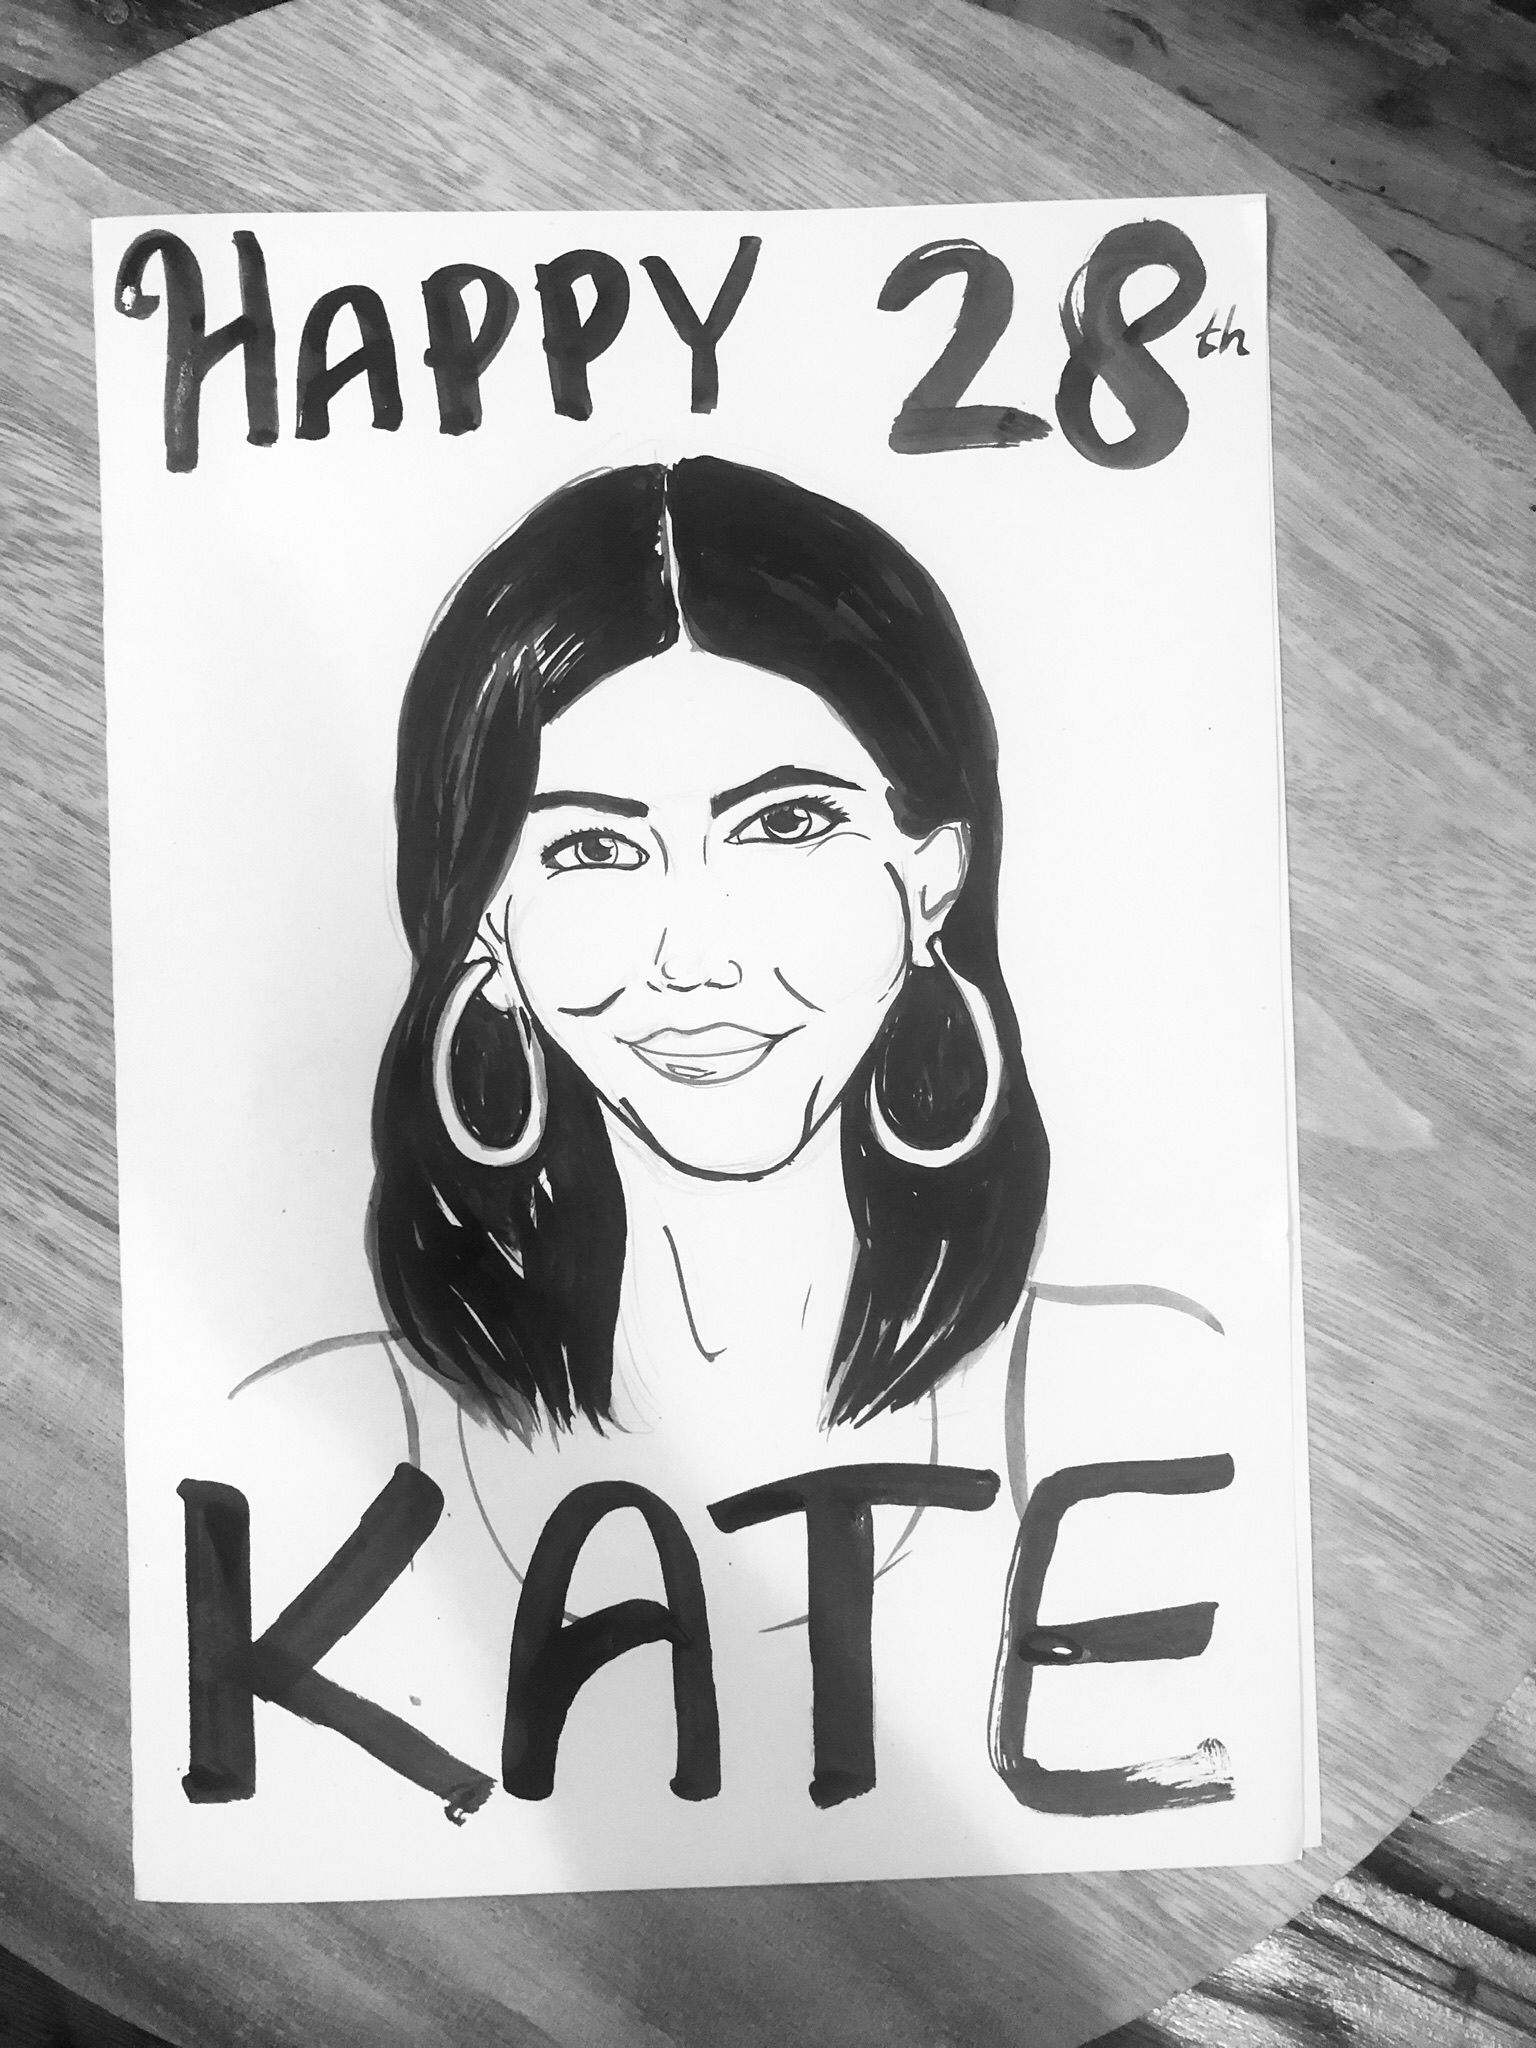 HAPPY 28th
KATE